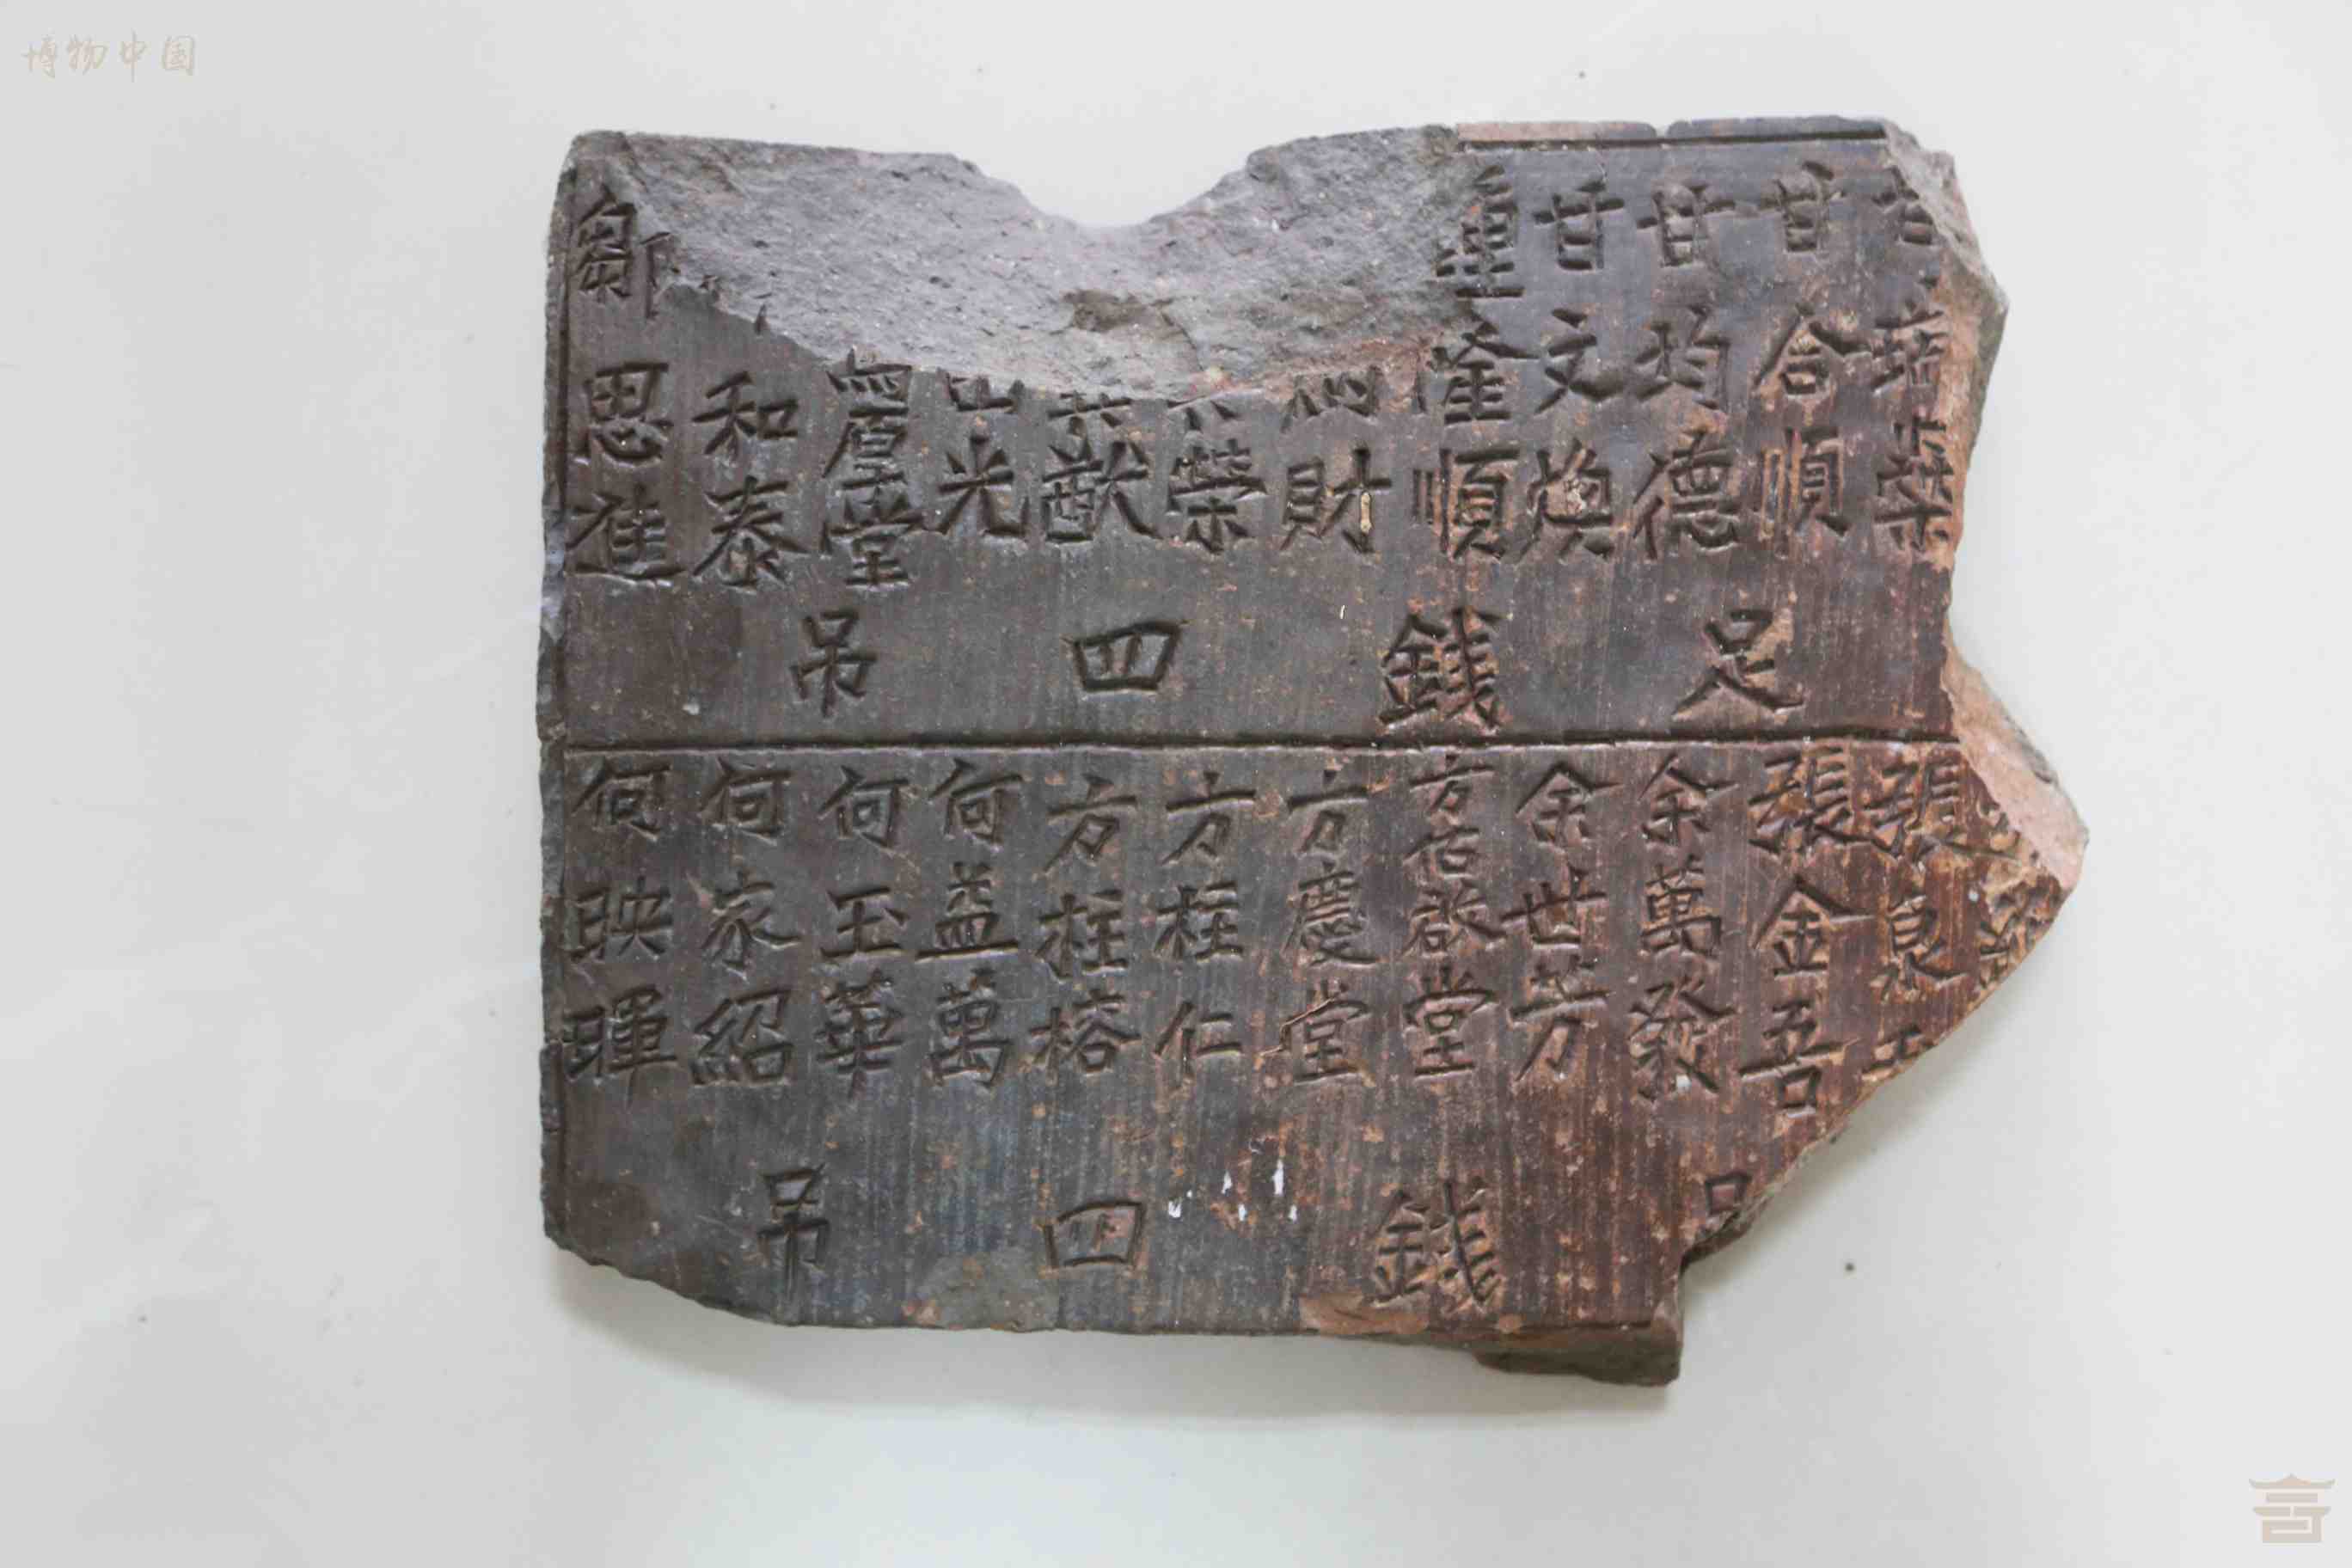 博物中国
培榮
甘合順
甘均德
甘文煥
隆順
財
榮
猷
光
厚堂
和泰
鄒思進
足錢四吊
張良
張金吾
余萬發
余世芳
方啟堂
方慶堂
方桂仁
方桂榕
何益萬
何玉華
何家紹
何映暉
錢四吊